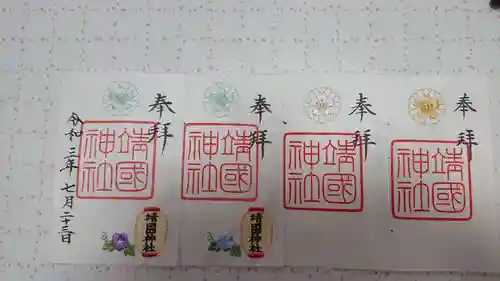 奉拝
靖國神社
靖國神社
令和三年七月二十三日
奉拝
靖國神社
靖國神社
奉拝
靖國神社
奉拝
靖國神社